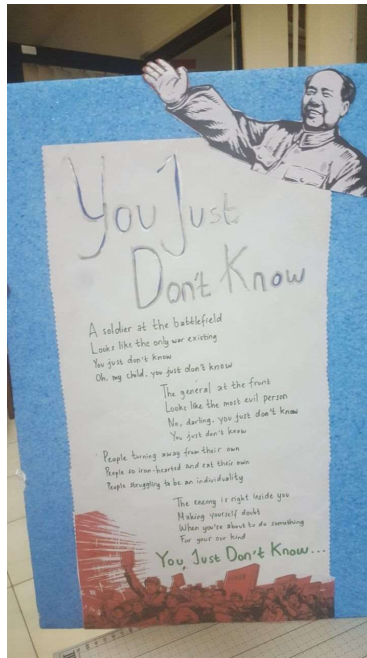 You Just
Don't Know
A soldier at the battlefield
Looks like the only war existing
You just don't know
Oh, my child, you just don't know
The general at the front
Looks like the most evil person
No, darling, you just don't know
You just don't know
People turning away from their own
People so iron-hearted and eat their own
People struggling to be an individuality
The enemy is right inside you
Making yourself doubt
When you're about to do something
For your own kind
You Just Don't Know...